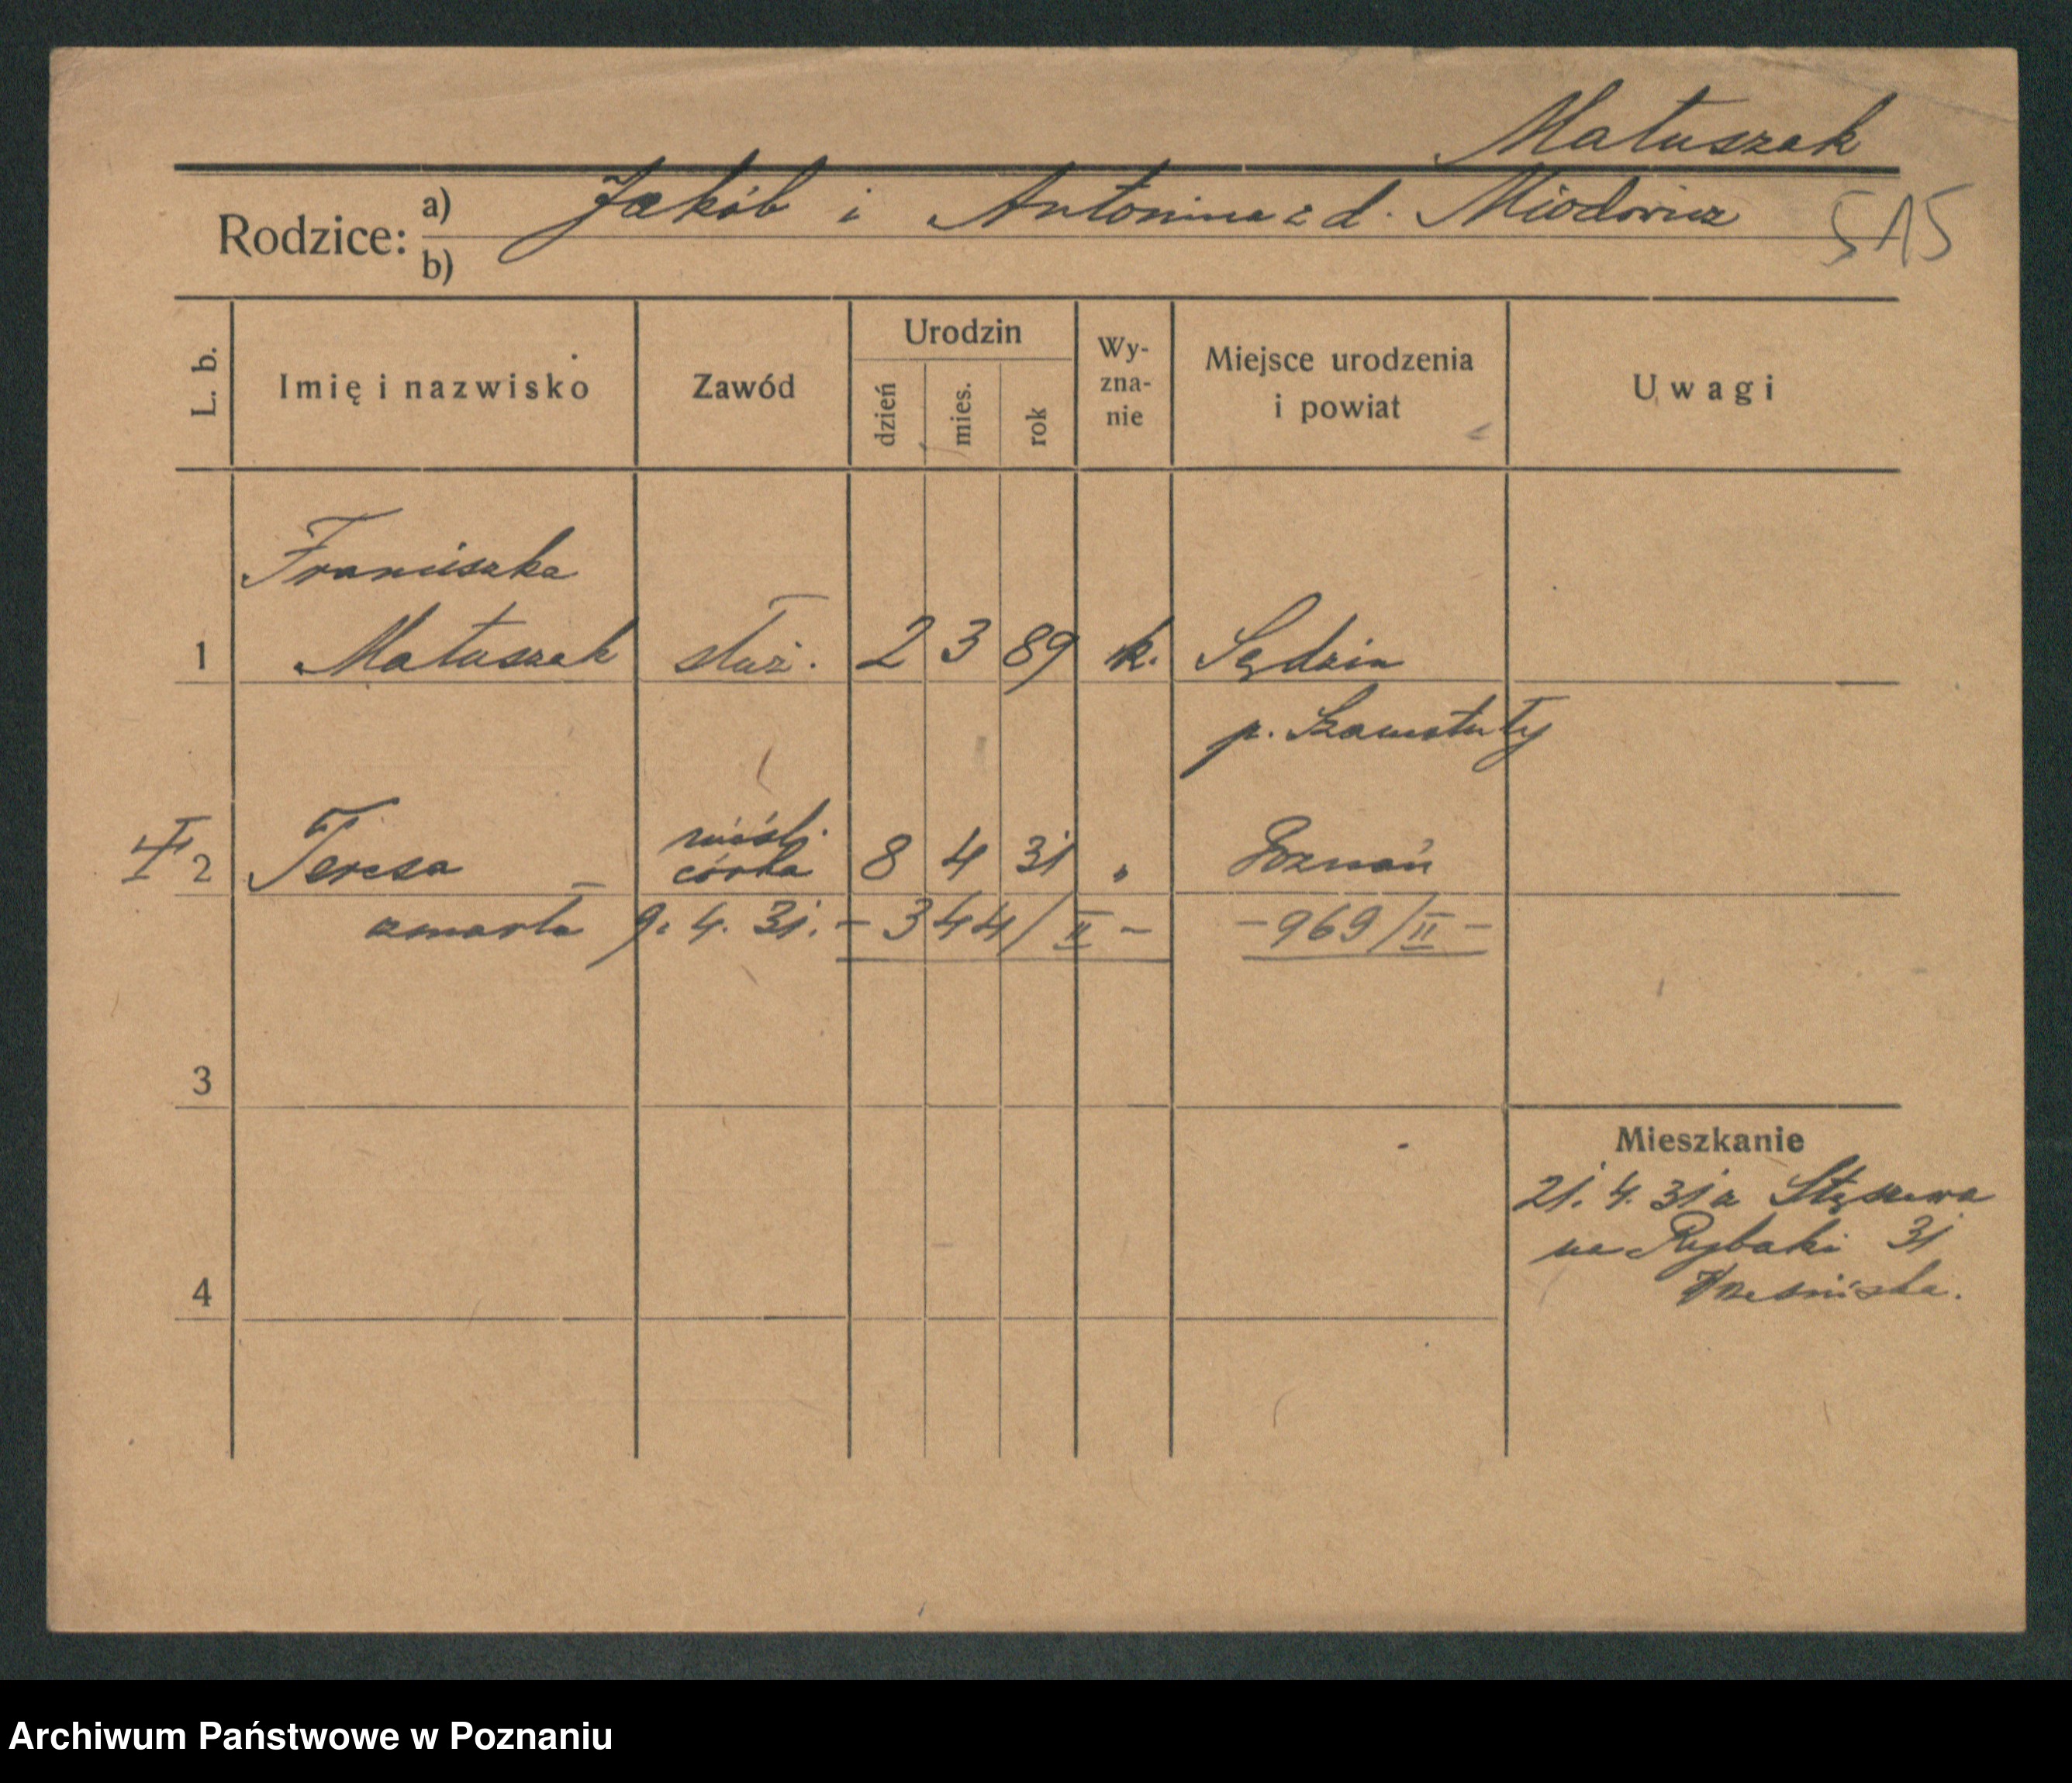 Matuszak
Rodzice: a) Jakób i Antonina z d. Miodowicz
b)
515
L. b. Imię i nazwisko Zawód Urodzin dzień mies. rok Wy-zna-nie Miejsce urodzenia i powiat Uwagi
Franciszka
1 Matuszak służ. 2 3 89 k. Sędzin
p. Szamotuły
2 Teresa – nieśl. córka 8 4 31 " Poznań
zmarła 9. 4. 31. – 344/II – – 969/II –
3
Mieszkanie
21. 4. 31 z Stęszewa
na Rybaki 31
4
Archiwum Państwowe w Poznaniu